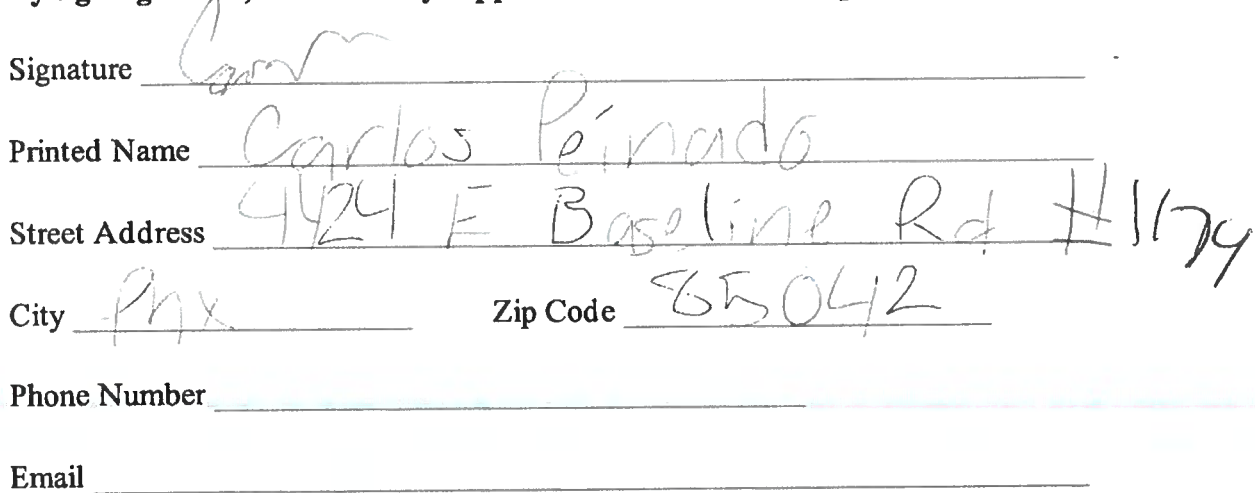 Signature
Printed Name Carlos Peinado
Street Address 4424 E Baseline Rd #1179
City Phx Zip Code 85042
Phone Number
Email